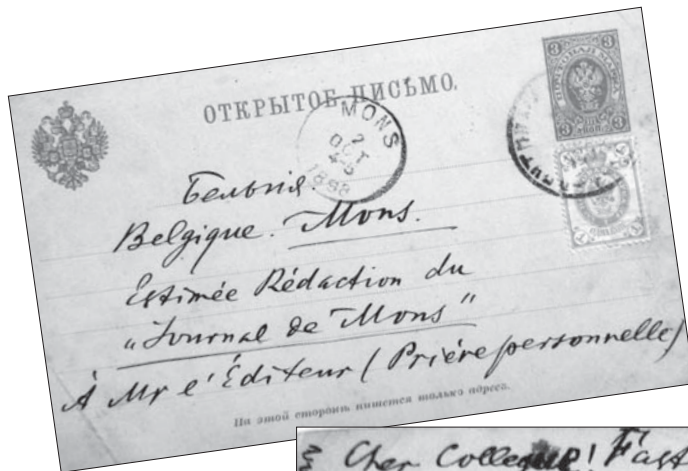 ОТКРЫТОЕ ПИСЬМО.
MONS
2
OCT
4-5
1898
3 3
3 3
Бельгія
Belgique. Mons.
Estimée Rédaction du
"Journal de Mons"
À Mr l'Éditeur (Prière personnelle)
На этой сторонѣ пишется только адресъ.
Cher Collegue! Fast